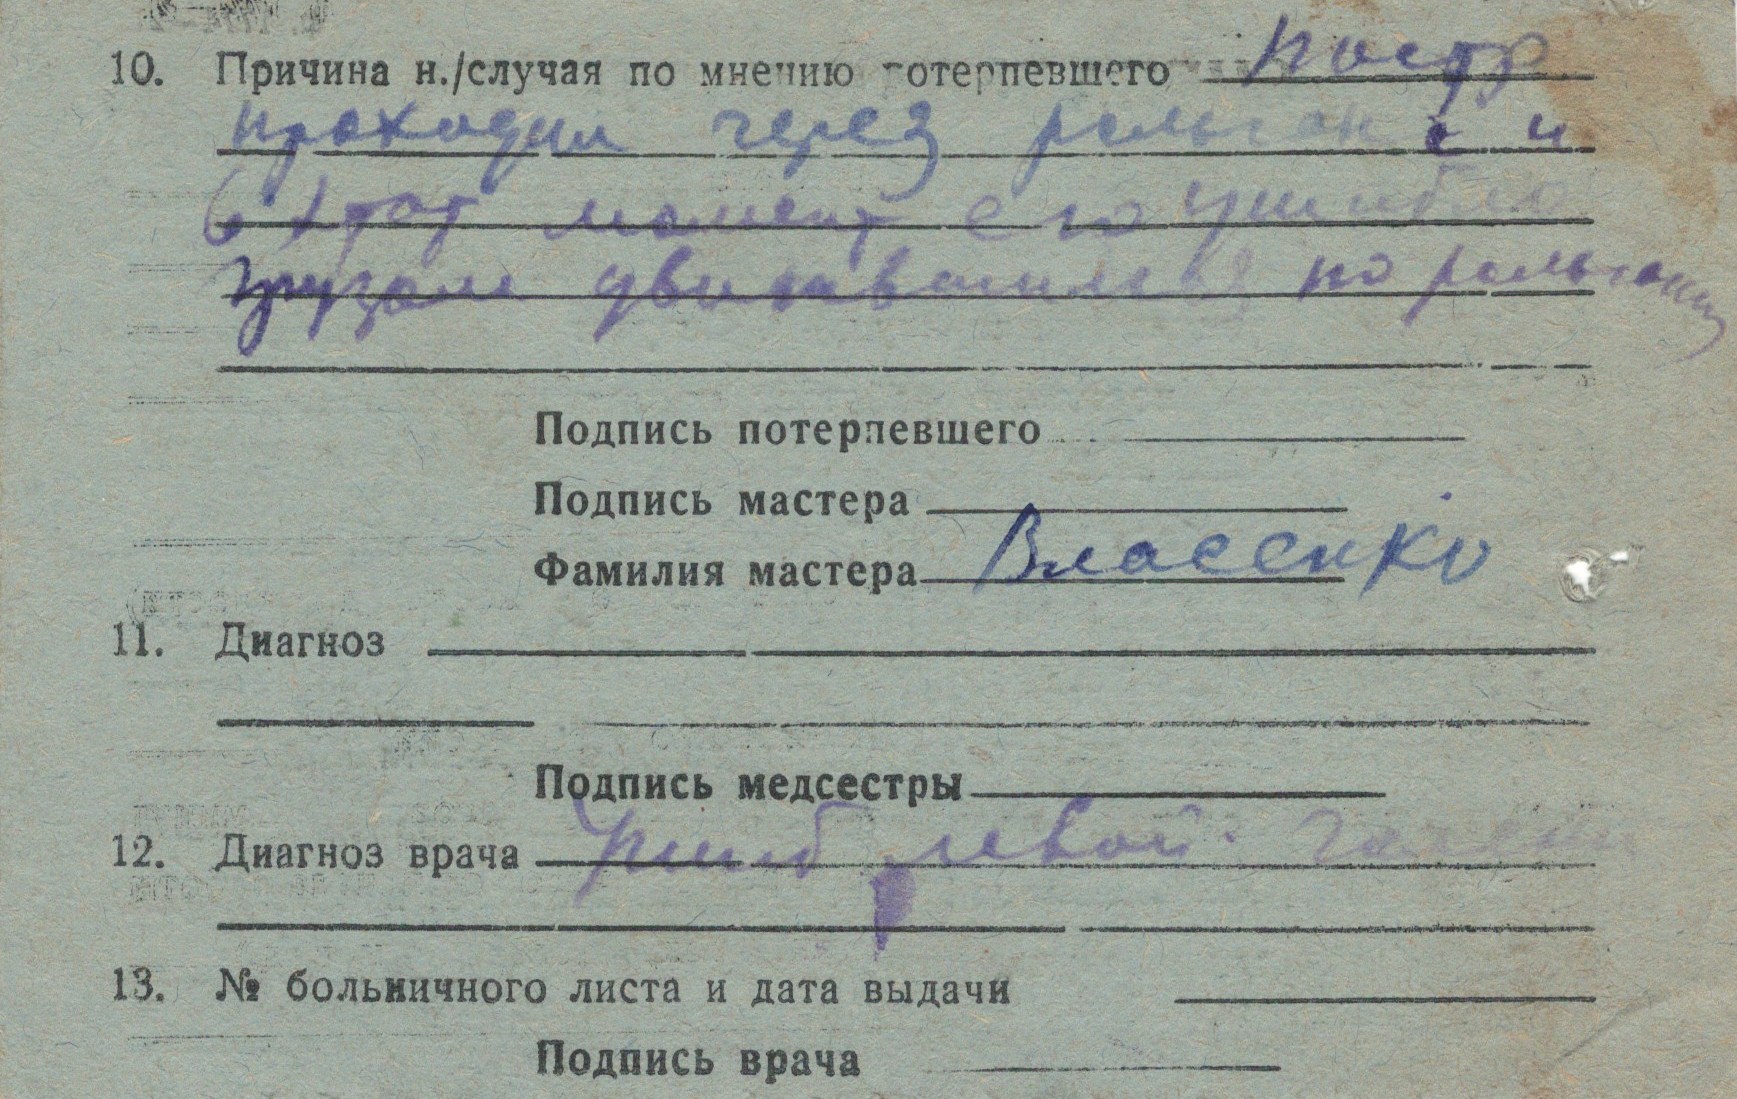 10. Причина н./случая по мнению потерпевшего Постр
проходил через рольганг и
в этот момент его ушибло
грузом двигавшимся по рольгангу
Подпись потерпевшего
Подпись мастера
Фамилия мастера Власенко
11. Диагноз
Подпись медсестры
12. Диагноз врача Ушиб левой голени
13. № больничного листа и дата выдачи
Подпись врача